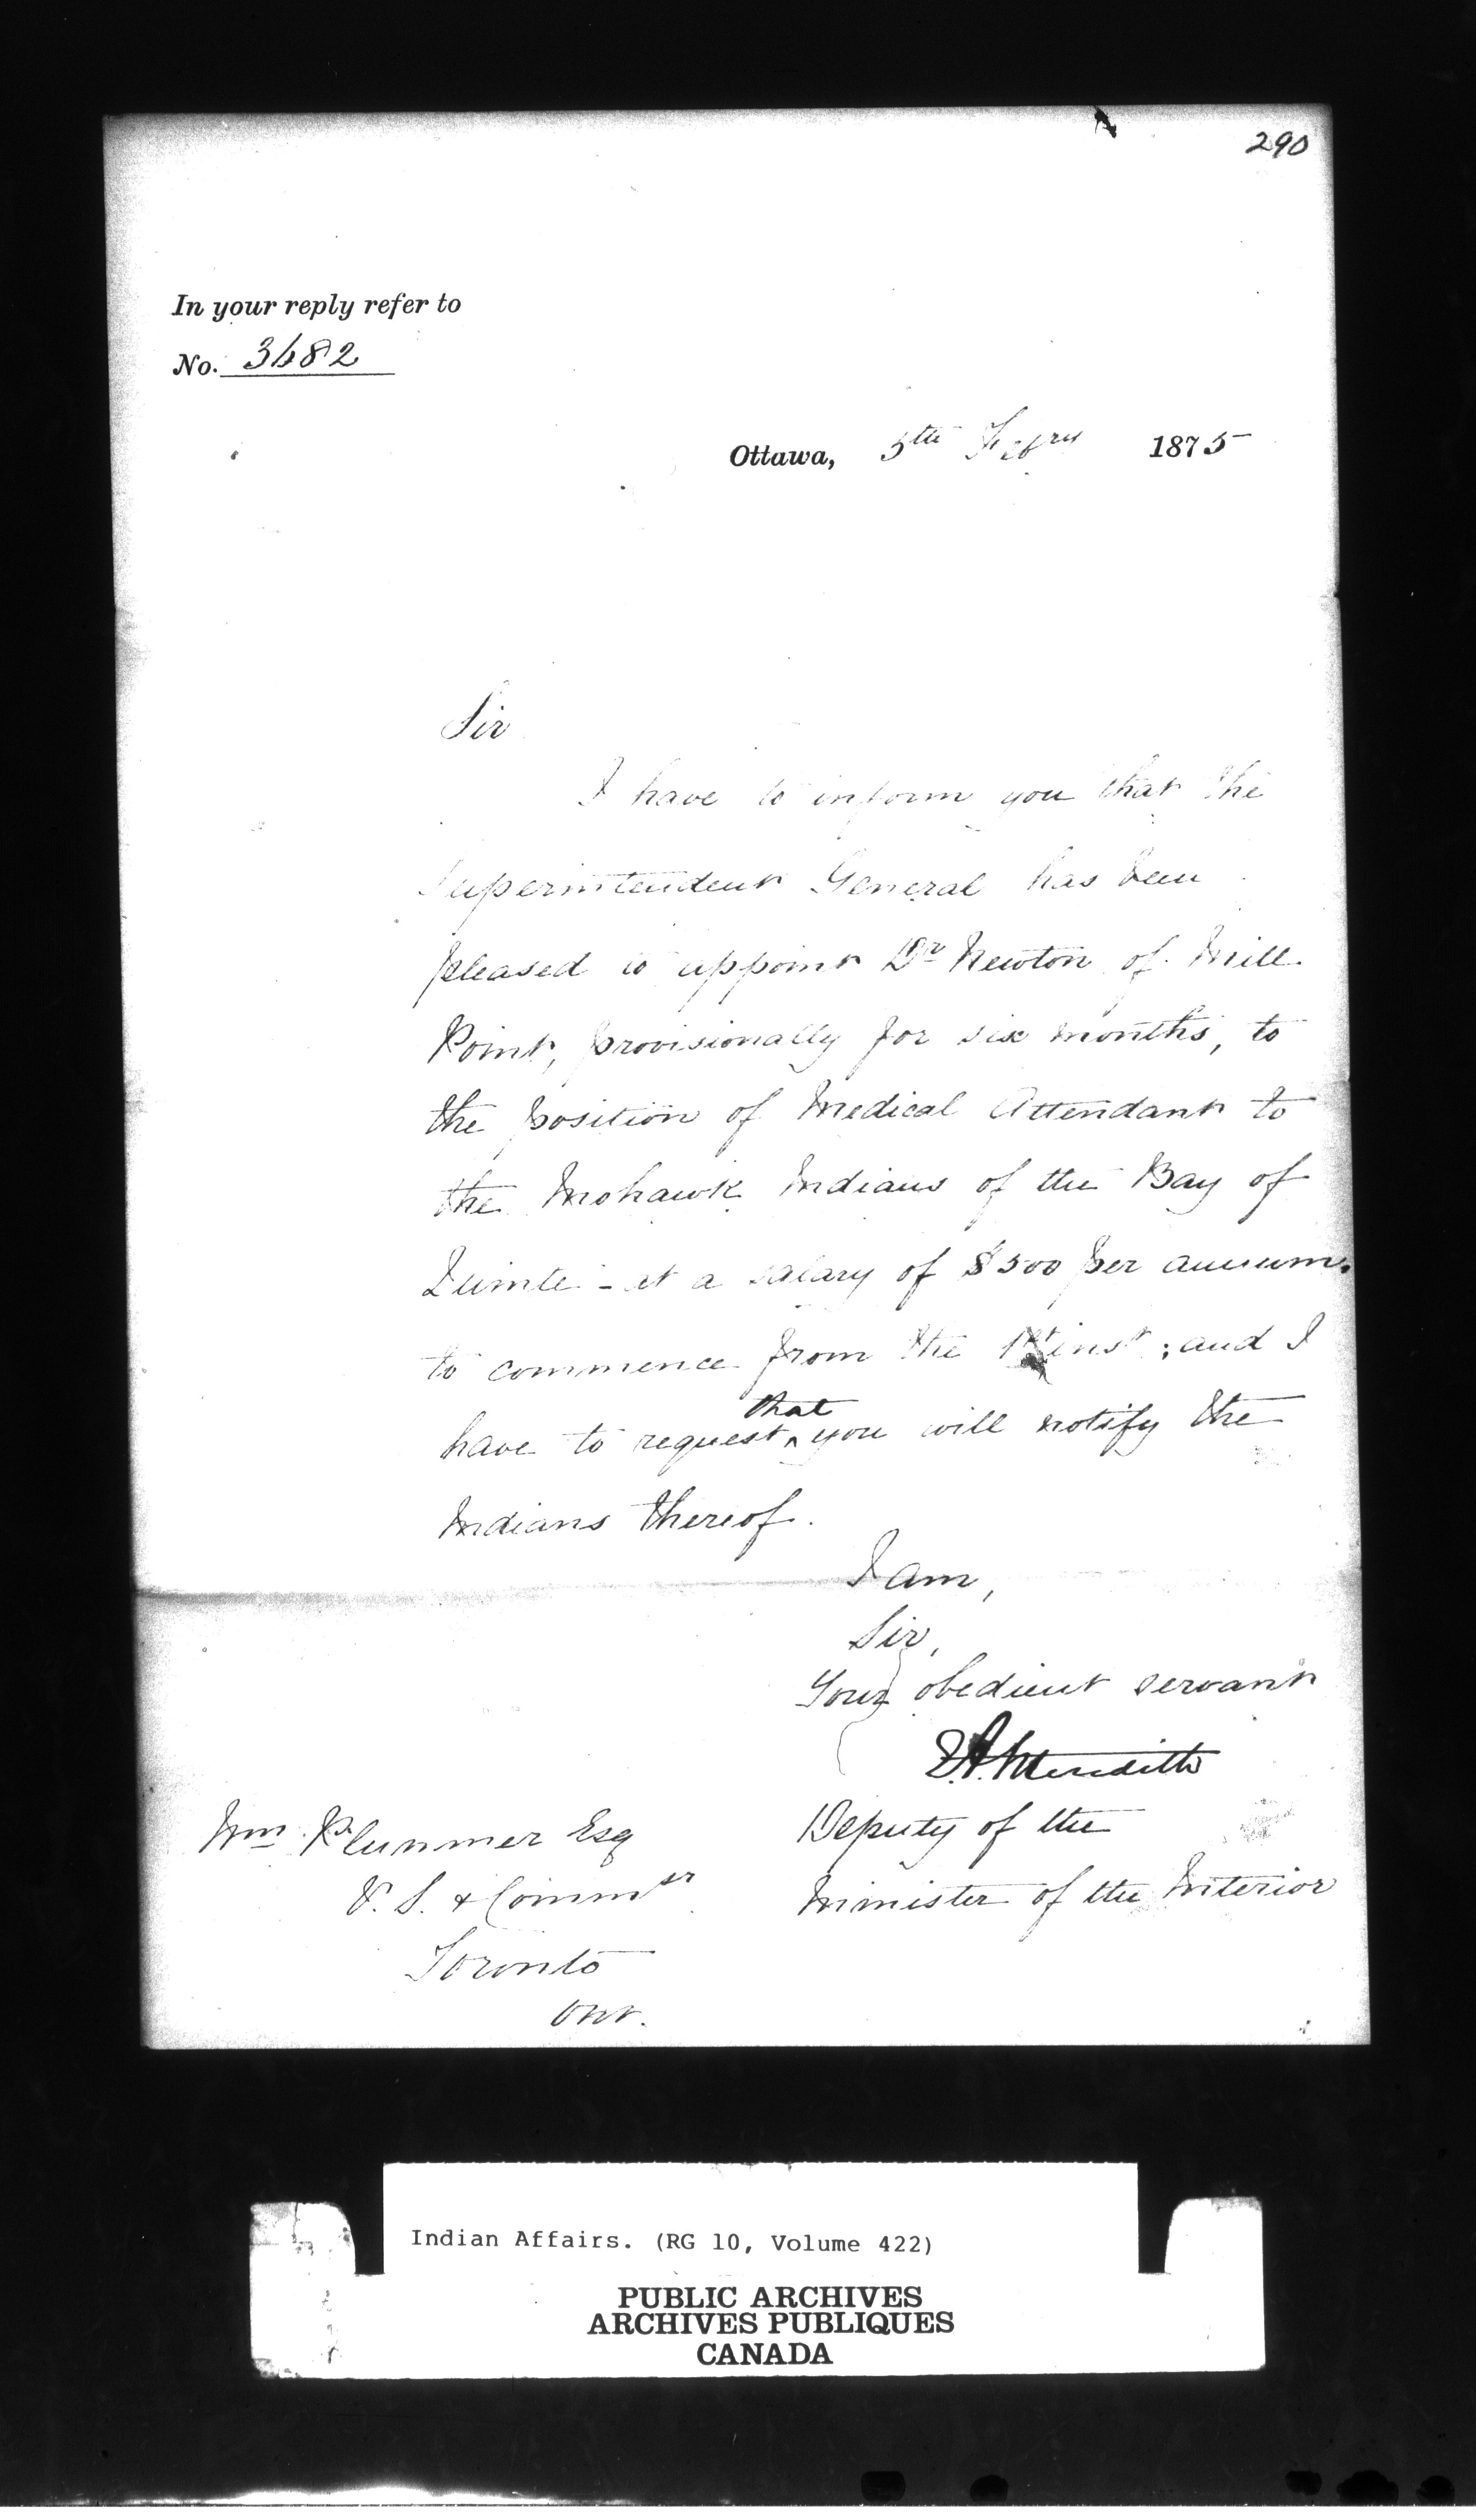 290
In your reply refer to
No. 3482
Ottawa, 5th Febry 1875
Sir
I have to inform you that the
Superintendent General has been
pleased to appoint Dr Newton of Mill
Point, provisionally for six months, to
the position of Medical Attendant to
the Mohawk Indians of the Bay of
Quinte - at a salary of $500 per annum.
to commence from the 1st inst; and I
have to request that you will notify the
Indians thereof.
I am,
Sir,
Your obedient servant
E.A. Meredith
Deputy of the
Minister of the Interior
Wm Plummer Esq
V. S. & Commsr
Toronto
Ont.
Indian Affairs. (RG 10, Volume 422)
PUBLIC ARCHIVES
ARCHIVES PUBLIQUES
CANADA